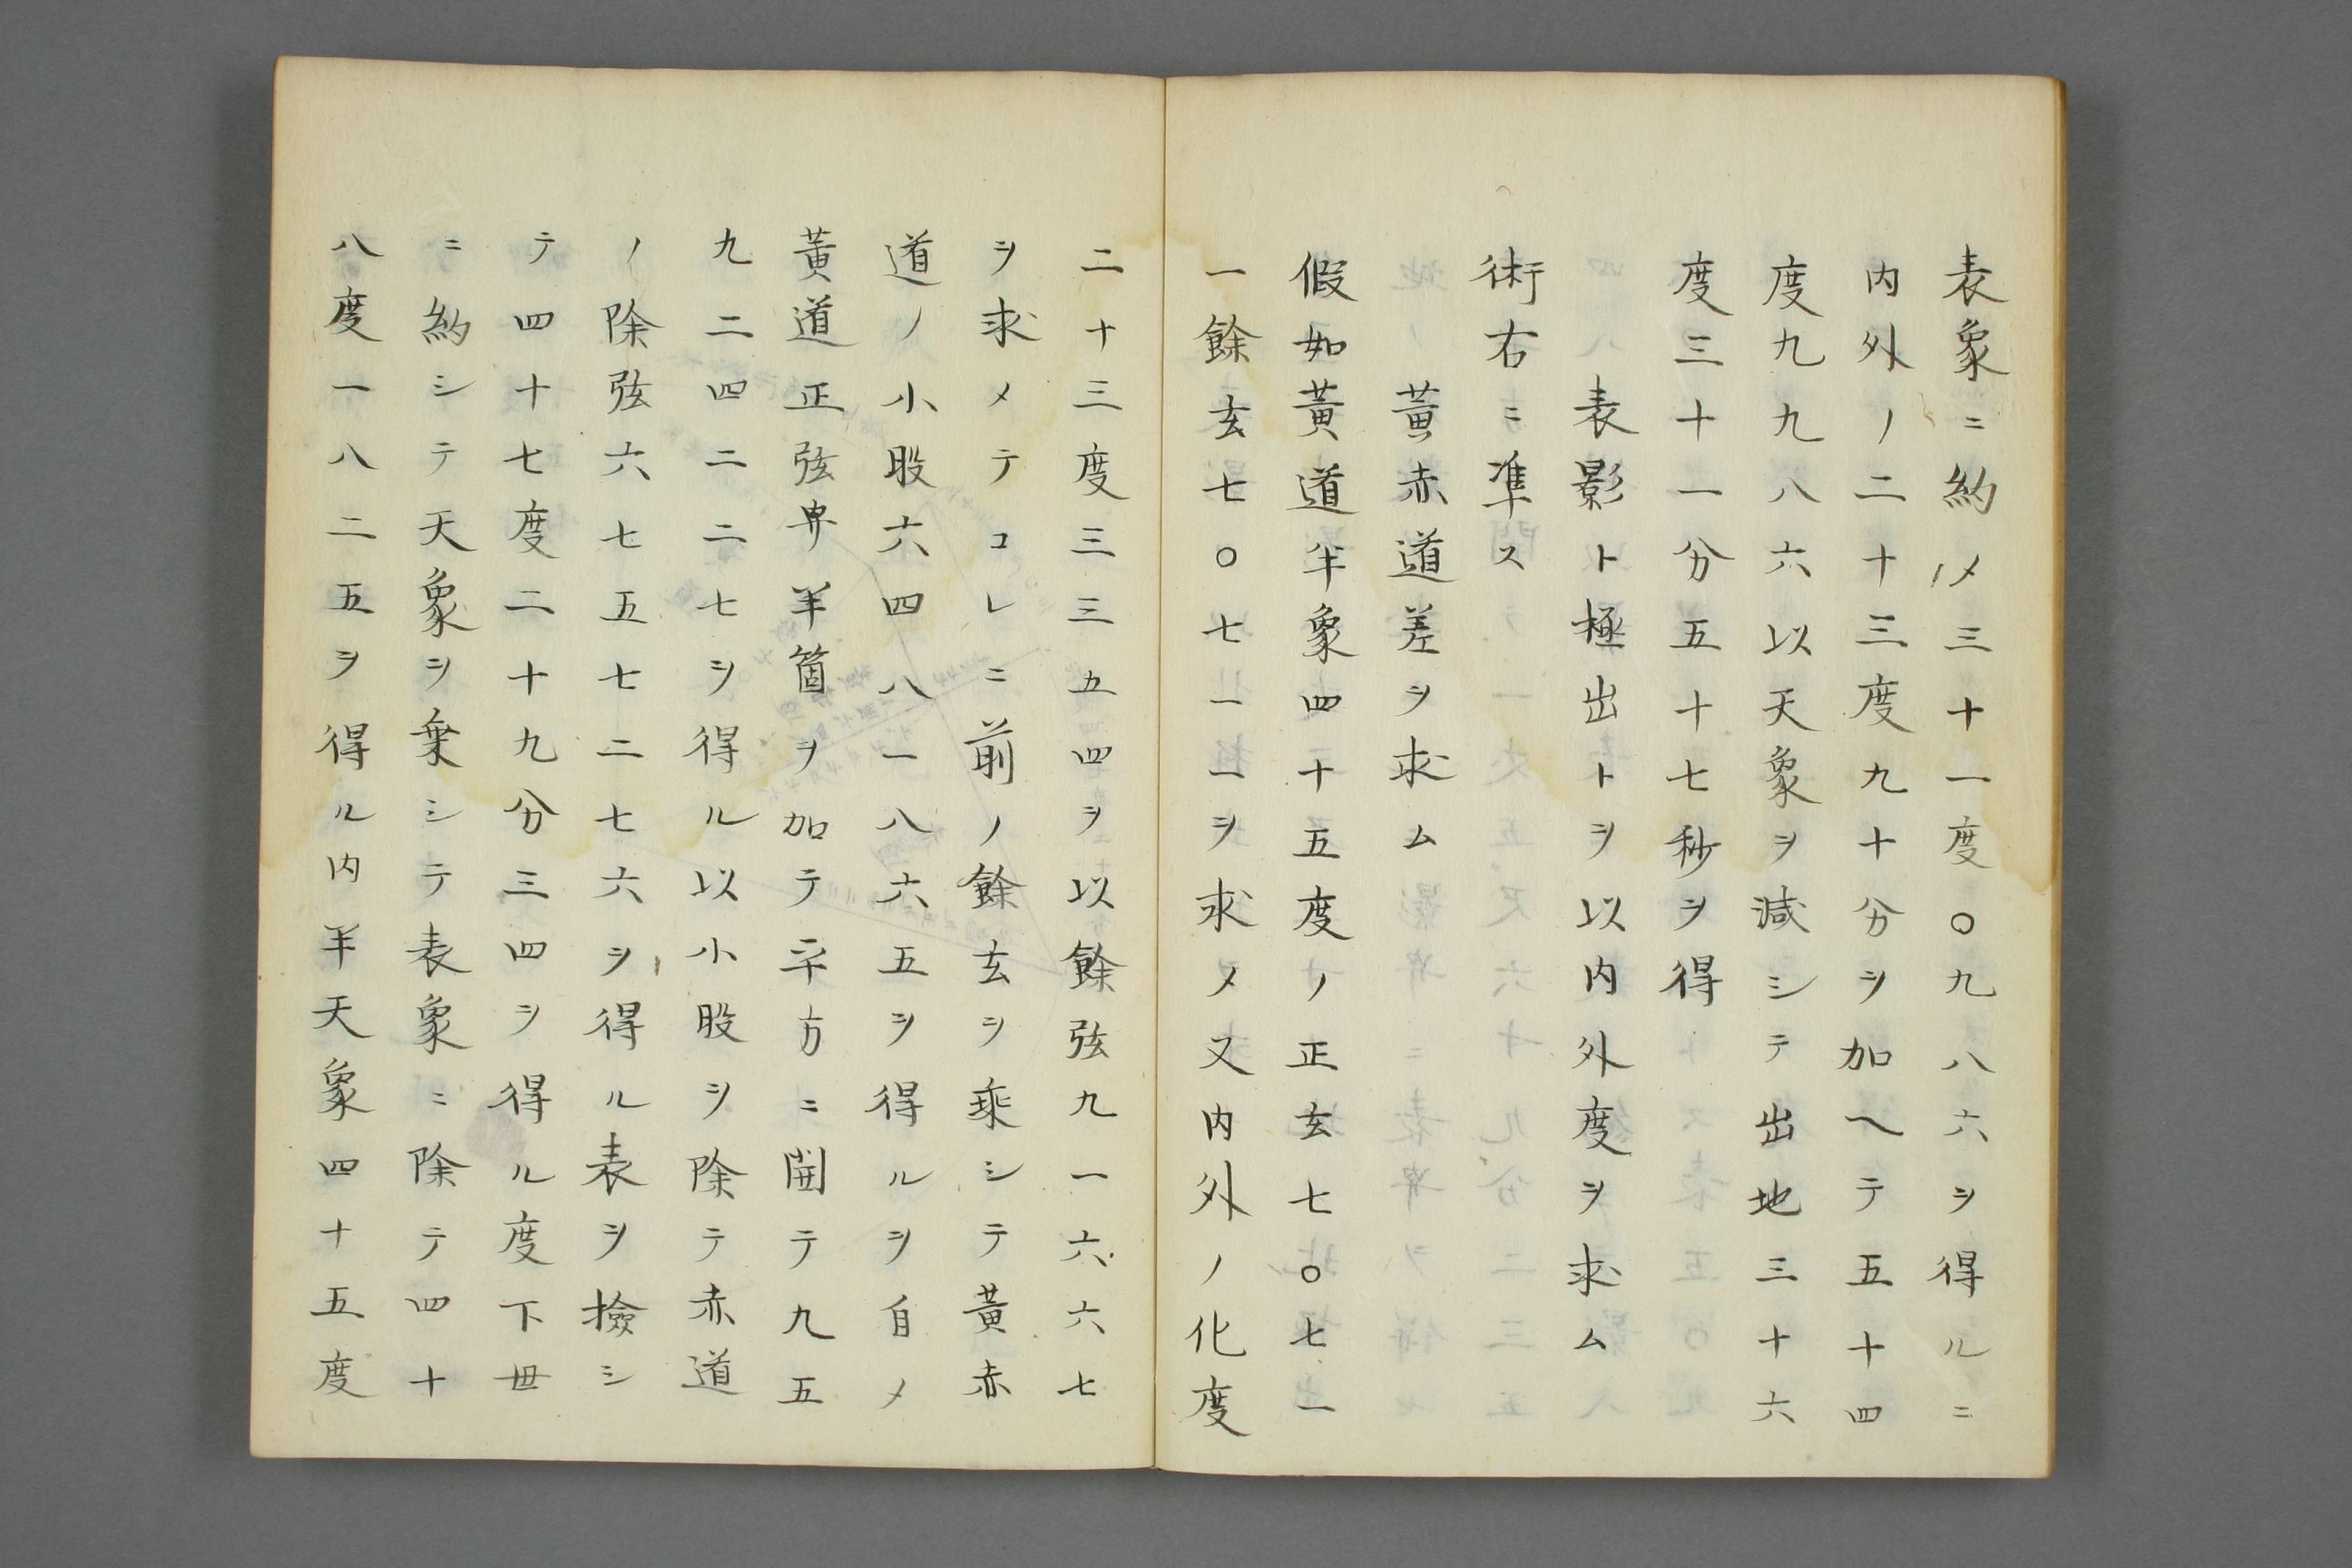 表象ニ約メ三十一度〇九八六ヲ得ルニ
内外ノ二十三度九十分ヲ加ヘテ五十四
度九九八六以天象ヲ減シテ出地三十六
度三十一分五十七秒ヲ得
表影ト極出トヲ以内外度ヲ求ム
術右ニ準ス
黄赤道差ヲ求ム
假如黄道半象四十五度ノ正玄七〇七一
一餘玄七〇七一一ヲ求メ又内外ノ化度
二十三度三三五四ヲ以餘弦九一六六七
ヲ求メテコレニ前ノ餘玄ヲ乘シテ黄赤
道ノ小股六四八一八六五ヲ得ルヲ自メ
黄道正弦冪半箇ヲ加テ平方ニ開テ九五
九二四二二七ヲ得ル以小股ヲ除テ赤道
ノ除弦六七五七二七六ヲ得ル表ヲ撿シ
テ四十七度二十九分三四ヲ得ル度下毋
ニ約シテ天象ヲ乗シテ表象ニ除テ四十
八度一八二五ヲ得ル内半天象四十五度